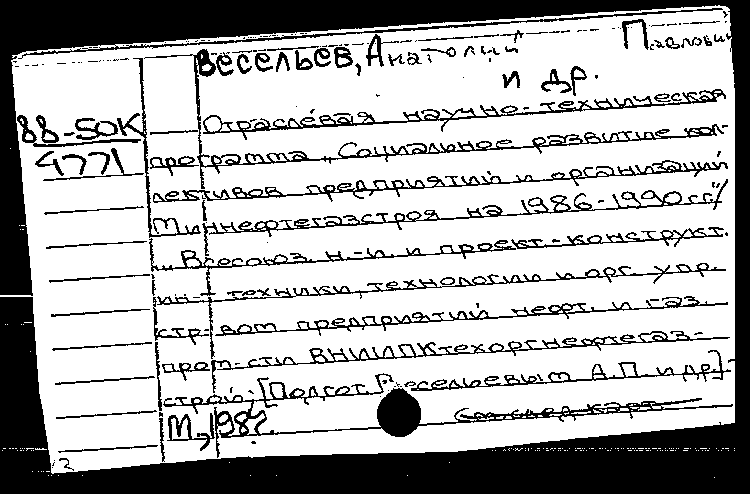 Весельев, Анатолий Павлович
и др.
88-50К
4771
Отраслевая научно-техническая
программа „Социальное развитие кол-
лективов предприятий и организаций
Миннефтегазстроя на 1986-1990 гг."/
„Всесоюз. н.-и. и проект.-конструкт.
ин-т техники, технологии и орг. упр.
стр-вом предприятий нефт. и газ.
пром-сти ВНИИПКтехоргнефтегаз-
строй; [Подгот. Весельевым А.П. и др.]-
М., 198
см след. карт.